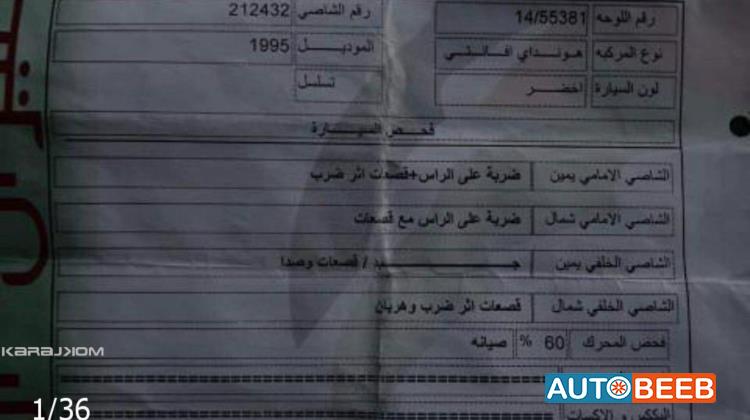 رقم اللوحه 14/55381 رقم الشاصي 212432
نوع المركبه هونداي افانتي الموديل 1995
لون السيارة اخضر تسلسل
فحص السيارة
الشاصي الامامي يمين ضربة على الراس+قصعات اثر ضرب
الشاصي الامامي شمال ضربة على الراس مع قصعات
الشاصي الخلفي يمين جيد / قصعات وصدا
الشاصي الخلفي شمال قصعات اثر ضرب وهريان
فحص المحرك 60 % صيانه
KARAJKOM
1/36
AUTOBEEB